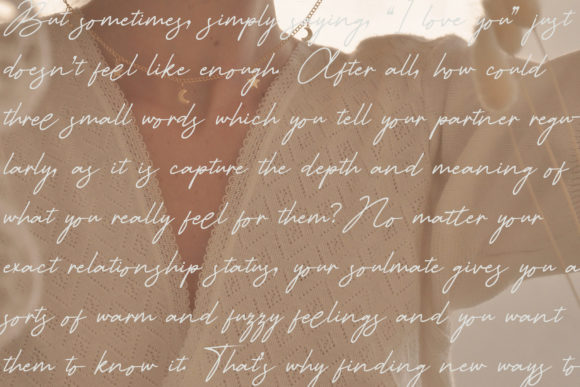 But sometimes, simply saying, “I love you” just
doesn't feel like enough. After all, how could
three small words which you tell your partner regu
larly, as it is capture the depth and meaning of
what you really feel for them? No matter your
exact relationship status, your soulmate gives you a
sorts of warm and fuzzy feelings and you want
them to know it. That's why finding new ways to